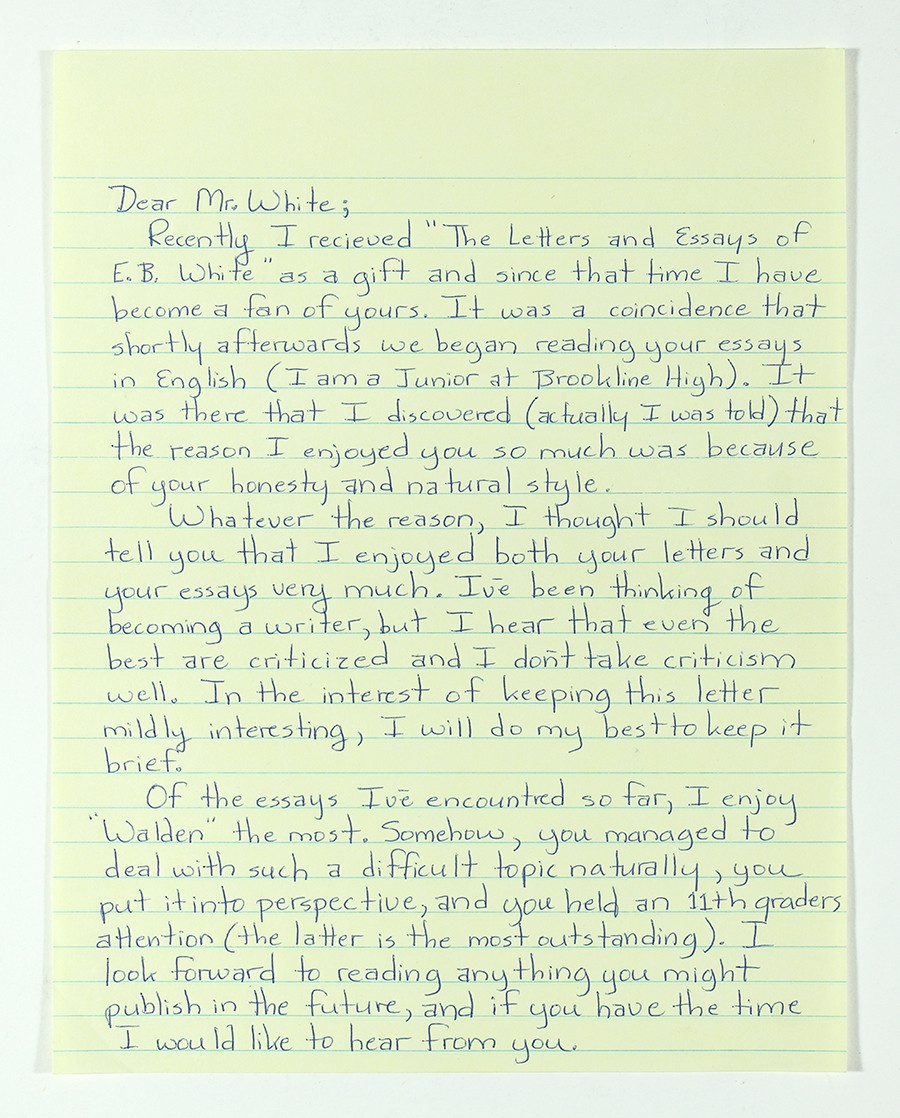 Dear Mr. White;
Recently I recieved "The Letters and Essays of
E.B. White" as a gift and since that time I have
become a fan of yours. It was a coincidence that
shortly afterwards we began reading your essays
in English (I am a Junior at Brookline High). It
was there that I discovered (actually I was told) that
the reason I enjoyed you so much was because
of your honesty and natural style.
Whatever the reason, I thought I should
tell you that I enjoyed both your letters and
your essays very much. I've been thinking of
becoming a writer, but I hear that even the
best are criticized and I don't take criticism
well. In the interest of keeping this letter
mildly interesting, I will do my best to keep it
brief.
Of the essays I've encountred so far, I enjoy
"Walden" the most. Somehow, you managed to
deal with such a difficult topic naturally, you
put it into perspective, and you held an 11th graders
attention (the latter is the most outstanding). I
look forward to reading anything you might
publish in the future, and if you have the time
I would like to hear from you.